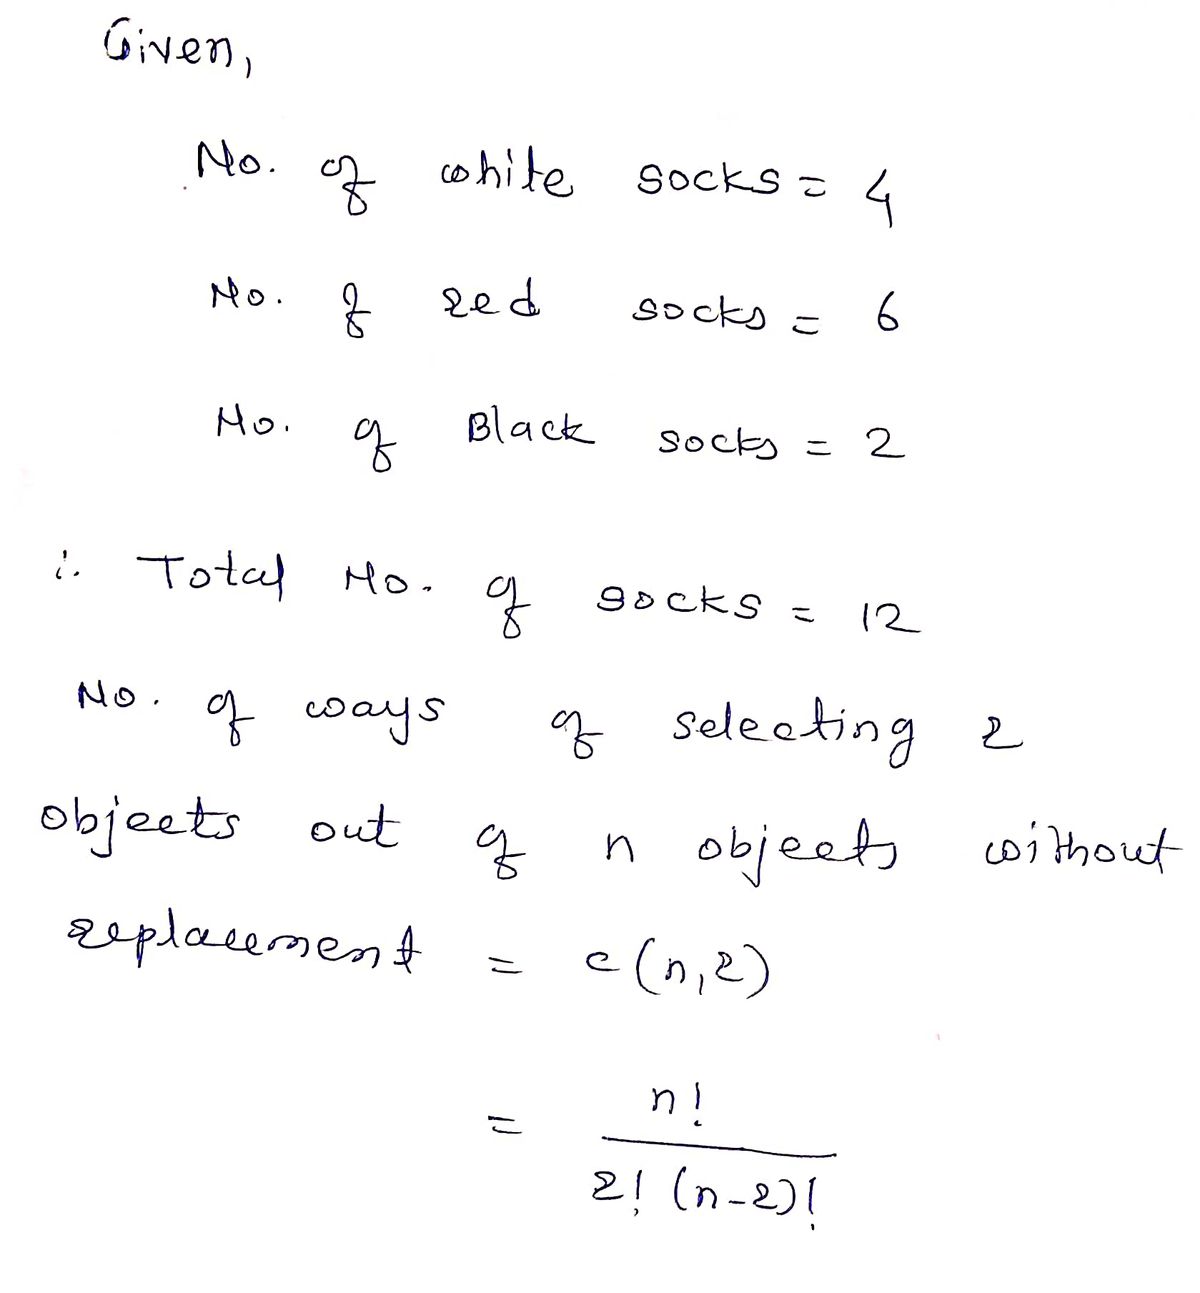 Given,
No. of white socks = 4
No. of red socks = 6
No. of Black socks = 2
∴ Total No. of socks = 12
No. of ways of selecting r
objects out of n objects without
replacement = c(n,r)
= n!
r! (n-r)!